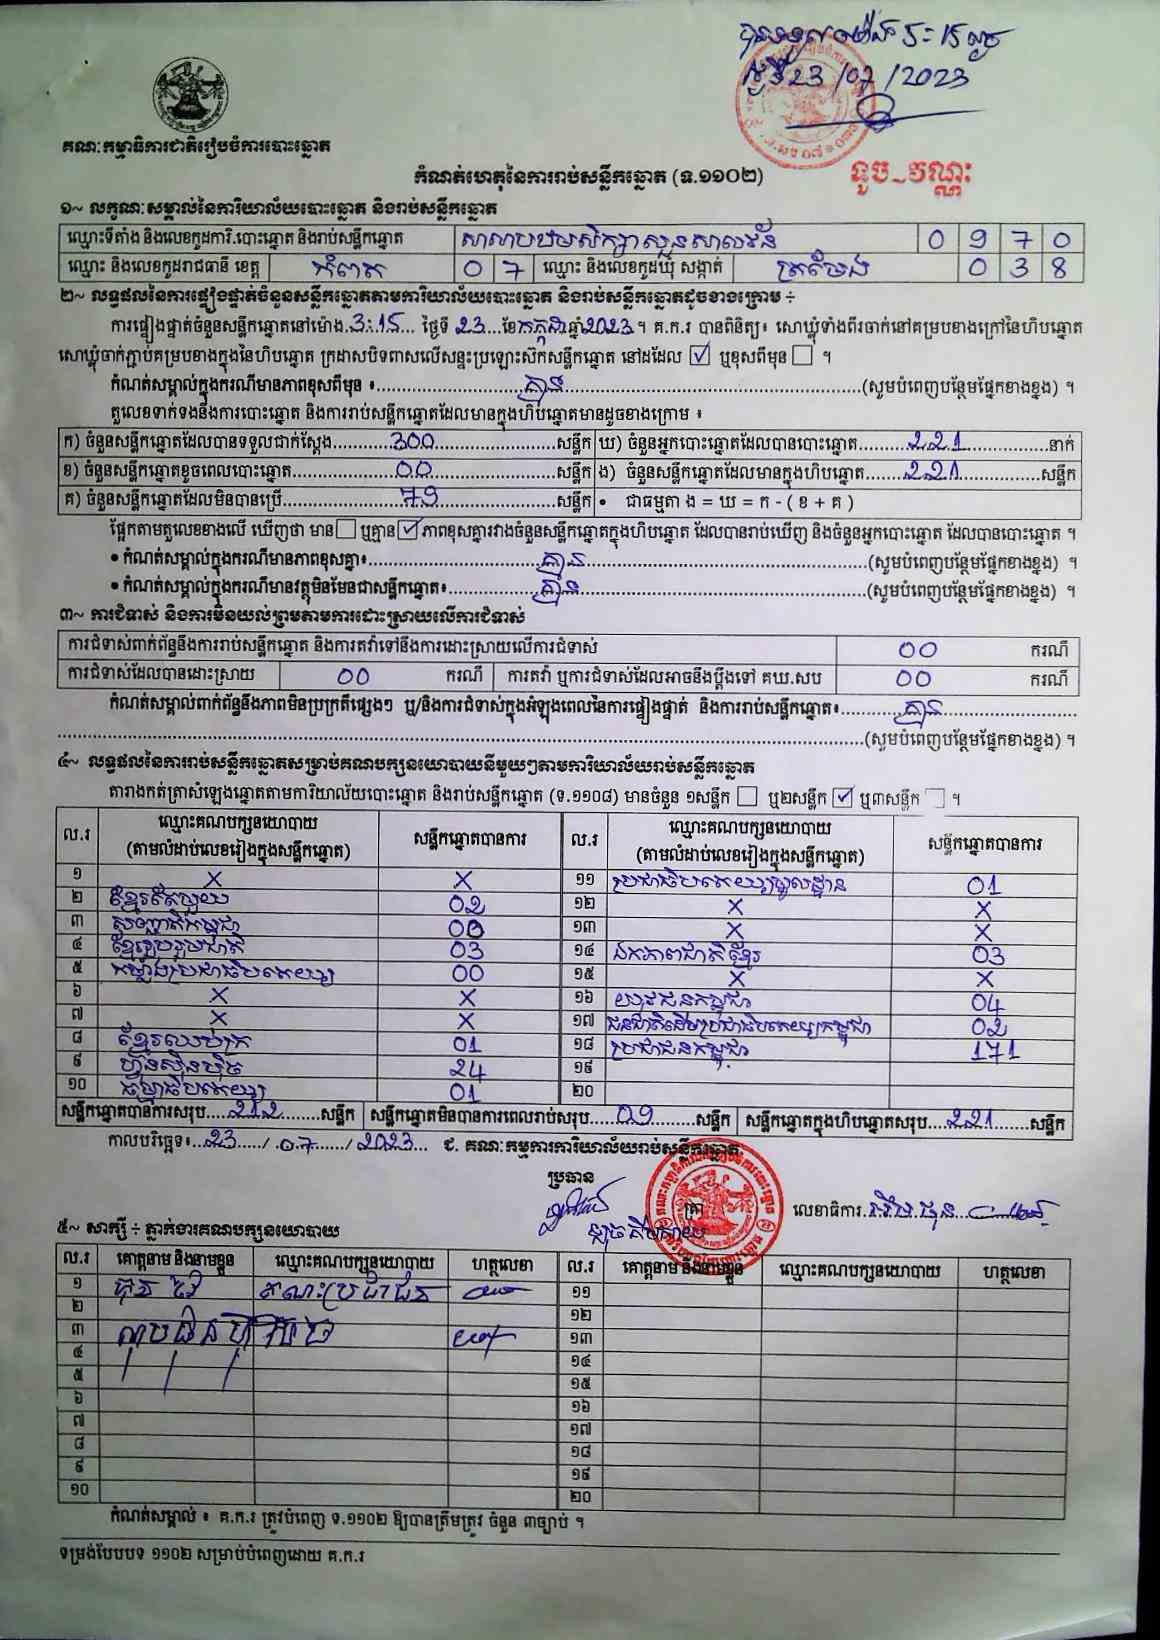 ថ្ងៃទី23 /07 /2023
គណៈកម្មាធិការជាតិរៀបចំការបោះឆ្នោត
កំណត់ហេតុនៃការរាប់សន្លឹកឆ្នោត (ទ.១១០២)
ទូច វណ្ណៈ
១~ លក្ខណៈសម្គាល់នៃការិយាល័យបោះឆ្នោត និងរាប់សន្លឹកឆ្នោត
ឈ្មោះទីតាំង និងលេខកូដការិ.បោះឆ្នោត និងរាប់សន្លឹកឆ្នោត សាលាបឋមសិក្សាសួនសាលវ័ន 0 9 7 0
ឈ្មោះ និងលេខកូដរាជធានី ខេត្ត កំពត 0 7 ឈ្មោះ និងលេខកូដឃុំ សង្កាត់ ត្រមែង 0 3 8
២~ លទ្ធផលនៃការផ្ទៀងផ្ទាត់ចំនួនសន្លឹកឆ្នោតតាមការិយាល័យបោះឆ្នោត និងរាប់សន្លឹកឆ្នោតដូចខាងក្រោម ÷
ការផ្ទៀងផ្ទាត់ចំនួនសន្លឹកឆ្នោតនៅម៉ោង.3:15... ថ្ងៃទី 23...ខែកក្កដាឆ្នាំ2023។ គ.ក.រ បានពិនិត្យ៖ សោឃ្លុំទាំងពីរចាក់នៅគម្របខាងក្រៅនៃហិបឆ្នោត
សោឃ្លុំចាក់ភ្ជាប់គម្របខាងក្នុងនៃហិបឆ្នោត ក្រដាសបិទពាសលើសន្ទះប្រឡោះស៊កសន្លឹកឆ្នោត នៅដដែល ☑ ឬខុសពីមុន ☐ ។
កំណត់សម្គាល់ក្នុងករណីមានភាពខុសពីមុន ៖ គ្មាន (សូមបំពេញបន្ថែមផ្នែកខាងខ្នង) ។
តួលេខទាក់ទងនឹងការបោះឆ្នោត និងការរាប់សន្លឹកឆ្នោតដែលមានក្នុងហិបឆ្នោតមានដូចខាងក្រោម ៖
ក) ចំនួនសន្លឹកឆ្នោតដែលបានទទួលជាក់ស្តែង 300 សន្លឹក ឃ) ចំនួនអ្នកបោះឆ្នោតដែលបានបោះឆ្នោត 221 នាក់
ខ) ចំនួនសន្លឹកឆ្នោតខូចពេលបោះឆ្នោត 00 សន្លឹក ង) ចំនួនសន្លឹកឆ្នោតដែលមានក្នុងហិបឆ្នោត 221 សន្លឹក
គ) ចំនួនសន្លឹកឆ្នោតដែលមិនបានប្រើ 79 សន្លឹក • ជាធម្មតា ង = ឃ = ក - ( ខ + គ )
ផ្អែកតាមតួលេខខាងលើ ឃើញថា មាន ☐ ឬគ្មាន ☑ ភាពខុសគ្នារវាងចំនួនសន្លឹកឆ្នោតក្នុងហិបឆ្នោត ដែលបានរាប់ឃើញ និងចំនួនអ្នកបោះឆ្នោត ដែលបានបោះឆ្នោត ។
• កំណត់សម្គាល់ក្នុងករណីមានភាពខុសគ្នា៖ គ្មាន (សូមបំពេញបន្ថែមផ្នែកខាងខ្នង) ។
• កំណត់សម្គាល់ក្នុងករណីមានវត្ថុមិនមែនជាសន្លឹកឆ្នោត៖ គ្មាន (សូមបំពេញបន្ថែមផ្នែកខាងខ្នង) ។
៣~ ការជំទាស់ និងការមិនយល់ព្រមតាមការដោះស្រាយលើការជំទាស់
ការជំទាស់ពាក់ព័ន្ធនឹងការរាប់សន្លឹកឆ្នោត និងការតវ៉ាទៅនឹងការដោះស្រាយលើការជំទាស់ 00 ករណី
ការជំទាស់ដែលបានដោះស្រាយ 00 ករណី ការតវ៉ា ឬការជំទាស់ដែលអាចនឹងប្តឹងទៅ គឃ.សប 00 ករណី
កំណត់សម្គាល់ពាក់ព័ន្ធនឹងភាពមិនប្រក្រតីផ្សេងៗ ឬ/និងការជំទាស់ក្នុងអំឡុងពេលនៃការផ្ទៀងផ្ទាត់ និងការរាប់សន្លឹកឆ្នោត៖ គ្មាន
(សូមបំពេញបន្ថែមផ្នែកខាងខ្នង) ។
៤~ លទ្ធផលនៃការរាប់សន្លឹកឆ្នោតសម្រាប់គណបក្សនយោបាយនីមួយៗតាមការិយាល័យរាប់សន្លឹកឆ្នោត
តារាងកត់ត្រាសំឡេងឆ្នោតតាមការិយាល័យបោះឆ្នោត និងរាប់សន្លឹកឆ្នោត (ទ.១១០៨) មានចំនួន ១សន្លឹក ☐ ឬ២សន្លឹក ☑ ឬ៣សន្លឹក ☐ ។
ល.រ ឈ្មោះគណបក្សនយោបាយ (តាមលំដាប់លេខរៀងក្នុងសន្លឹកឆ្នោត) សន្លឹកឆ្នោតបានការ ល.រ ឈ្មោះគណបក្សនយោបាយ (តាមលំដាប់លេខរៀងក្នុងសន្លឹកឆ្នោត) សន្លឹកឆ្នោតបានការ
១ X X ១១ ប្រជាធិបតេយ្យមូលដ្ឋាន 01
២ ខ្មែរតែមួយ 02 ១២ X X
៣ សញ្ជាតិកម្ពុជា 00 ១៣ X X
៤ ខ្មែររួបរួមជាតិ 03 ១៤ ឯកភាពជាតិខ្មែរ 03
៥ កម្លាំងប្រជាធិបតេយ្យ 00 ១៥ X X
៦ X X ១៦ យុវជនកម្ពុជា 04
៧ X X ១៧ ជនជាតិដើមប្រជាធិបតេយ្យកម្ពុជា 02
៨ ខ្មែរឈប់ក្រ 01 ១៨ ប្រជាជនកម្ពុជា 171
៩ ហ្វ៊ុនស៊ិនប៉ិច 24 ១៩
១០ ធម្មាធិបតេយ្យ 01 ២០
សន្លឹកឆ្នោតបានការសរុប 212 សន្លឹក សន្លឹកឆ្នោតមិនបានការពេលរាប់សរុប 09 សន្លឹក សន្លឹកឆ្នោតក្នុងហិបឆ្នោតសរុប 221 សន្លឹក
កាលបរិច្ឆេទ៖ 23 / 07 / 2023 ជ. គណៈកម្មការការិយាល័យរាប់សន្លឹកឆ្នោត
ប្រធាន
លេខាធិការ
៥~ សាក្សី ÷ ភ្នាក់ងារគណបក្សនយោបាយ
ល.រ គោត្តនាម និងនាមខ្លួន ឈ្មោះគណបក្សនយោបាយ ហត្ថលេខា ល.រ គោត្តនាម និងនាមខ្លួន ឈ្មោះគណបក្សនយោបាយ ហត្ថលេខា
១ គណៈប្រជាជន ១១
២ ១២
៣ ១៣
៤ ១៤
៥ ១៥
៦ ១៦
៧ ១៧
៨ ១៨
៩ ១៩
១០ ២០
កំណត់សម្គាល់ ៖ គ.ក.រ ត្រូវបំពេញ ទ.១១០២ ឱ្យបានត្រឹមត្រូវ ចំនួន ៣ច្បាប់ ។
ទម្រង់បែបបទ ១១០២ សម្រាប់បំពេញដោយ គ.ក.រ